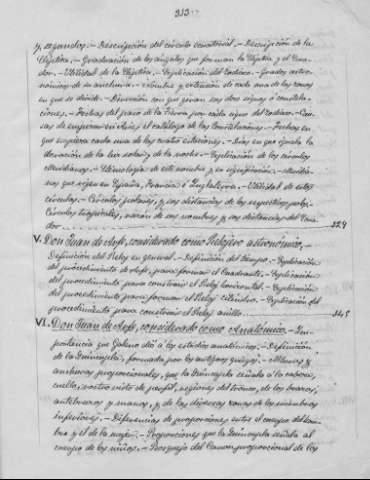 313
y segundos.- Descripción del círculo ecuatorial.- Descripción de la
Eclíptica.- Graduación de los ángulos que forman la Eclíptica y el Ecua-
dor.- Utilidad de la Eclíptica.- Explicación del Zodiaco.- Grados astro-
nómicos de su anchura.- y extensión de cada una de las zonas
en que se divide.- Dirección con que giran sus doce signos ó constela-
ciones.- Fechas del paso de la Tierra por cada signo del Zodiaco.- Cau-
sas de empezar en Aries el catálogo de las Constelaciones.- Fechas en
que empieza cada una de las cuatro estaciones.- Días en que iguala la
duración de la luz solar y de la noche.- Explicación de los círculos
Meridianos.- Etimología de este nombre y su significación.- Meridia-
nos que rigen en España, Francia é Inglaterra.- Utilidad de estos
círculos.- Círculos polares, y sus distancias de los respectivos polos.-
Círculos tropicales, razón de sus nombres y sus distancias del Ecua-
dor 329
V. Don Juan de Arfe, considerado como Relojero astronómico.-
Definición del Reloj en general.- Definición del tiempo.- Explicación
del procedimiento de Arfe, para formar el Cuadrante.- Explicación
del procedimiento para construir el Reloj horizontal.- Explicación
del procedimiento para formar el Reloj cilindro.- Explicación del
procedimiento para construir el Reloj anillo
VI. Don Juan de Arfe, considerado como Anatómico.- Im-
portancia que Galeno dió á los estudios anatómicos.- Definición
de la Quinupla, formada por los antiguos griegos.- Alturas y
anchuras proporcionales, que la Quinupla señala á la cabeza,
cuello, rostro visto de perfil, regiones del tronco, de los brazos,
antebrazos y manos, y de las diversas zonas de los miembros
inferiores.- Diferencias de proporciones entre el cuerpo del hom-
bre y el de la mujer.- Proporciones que la Quinupla señala al
cuerpo de los niños.- Bosquejo del Canon proporcional de los